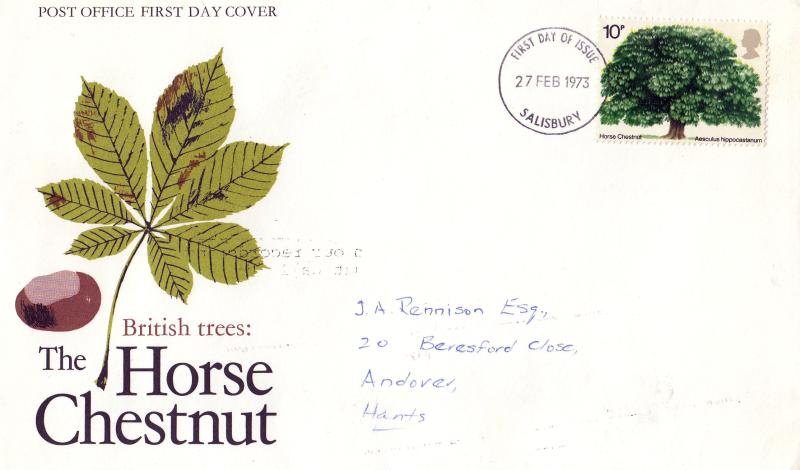 POST OFFICE FIRST DAY COVER
10P
FIRST DAY OF ISSUE
27 FEB 1973
SALISBURY
Horse Chestnut
Aesculus hippocastanum
J.A. Rennison Esq.,
20 Beresford Close,
Andover,
Hants
British trees:
The Horse
Chestnut